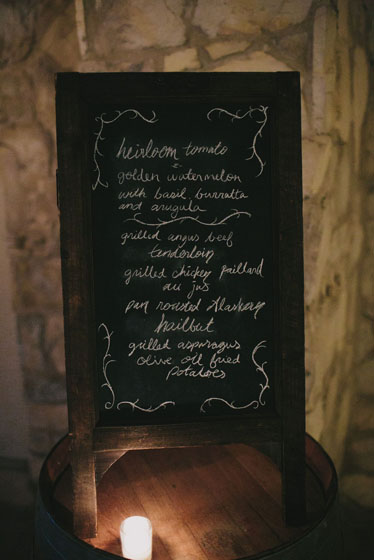 heirloom tomato
+
golden watermelon
with basil burratta
and arugula
grilled angus beef
tenderloin
grilled chicken paillard
au jus
pan roasted Alaskan
hailbut
grilled asparagus
olive oil fried
potatoes